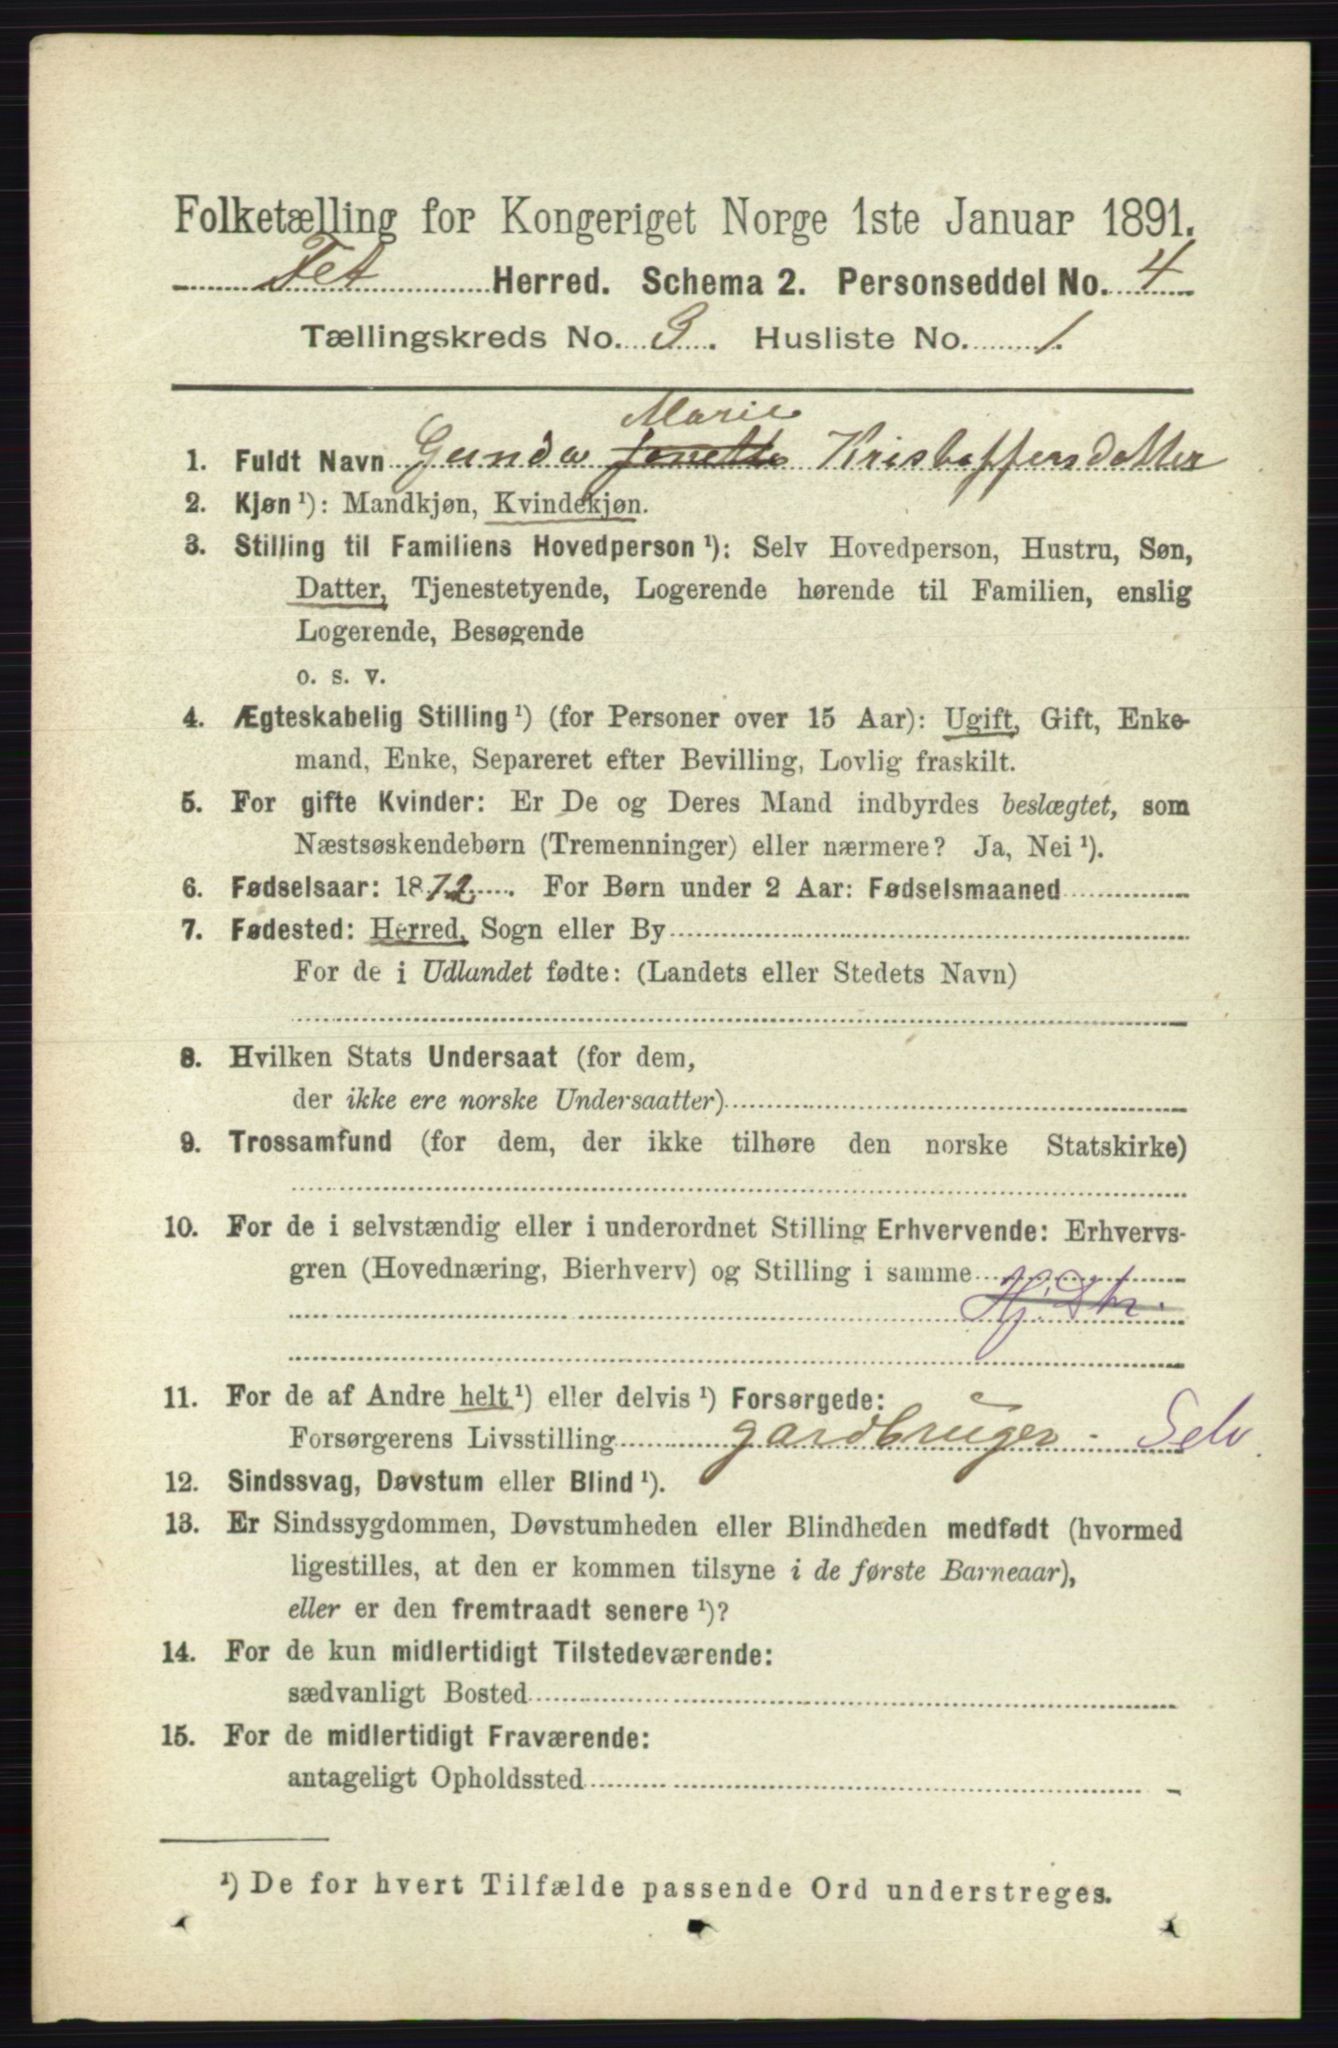 Folketælling for Kongeriget Norge 1ste Januar 1891.
Fet Herred. Schema 2. Personseddel No. 4
Tællingskreds No. 3. Husliste No. 1.
Marie
1. Fuldt Navn Gunda Janette Kristoffersdatter
2. Kjøn ¹): Mandkjøn, Kvindekjøn.
3. Stilling til Familiens Hovedperson ¹): Selv Hovedperson, Hustru, Søn,
Datter, Tjenestetyende, Logerende hørende til Familien, enslig
Logerende, Besøgende
o. s. v.
4. Ægteskabelig Stilling ¹) (for Personer over 15 Aar): Ugift, Gift, Enke-
mand, Enke, Separeret efter Bevilling, Lovlig fraskilt.
5. For gifte Kvinder: Er De og Deres Mand indbyrdes beslægtet, som
Næstsøskendebørn (Tremenninger) eller nærmere? Ja, Nei ¹).
6. Fødselsaar: 1872. For Børn under 2 Aar: Fødselsmaaned
7. Fødested: Herred, Sogn eller By
For de i Udlandet fødte: (Landets eller Stedets Navn)
8. Hvilken Stats Undersaat (for dem,
der ikke ere norske Undersaatter)
9. Trossamfund (for dem, der ikke tilhøre den norske Statskirke)
10. For de i selvstændig eller i underordnet Stilling Erhvervende: Erhvervs-
gren (Hovednæring, Bierhverv) og Stilling i samme
Hj. Dtr.
11. For de af Andre helt ¹) eller delvis ¹) Forsørgede:
Forsørgerens Livsstilling gardbruger - Selv
12. Sindssvag, Døvstum eller Blind ¹).
13. Er Sindssygdommen, Døvstumheden eller Blindheden medfødt (hvormed
ligestilles, at den er kommen tilsyne i de første Barneaar),
eller er den fremtraadt senere ¹)?
14. For de kun midlertidigt Tilstedeværende:
sædvanligt Bosted
15. For de midlertidigt Fraværende:
antageligt Opholdssted
¹) De for hvert Tilfælde passende Ord understreges.